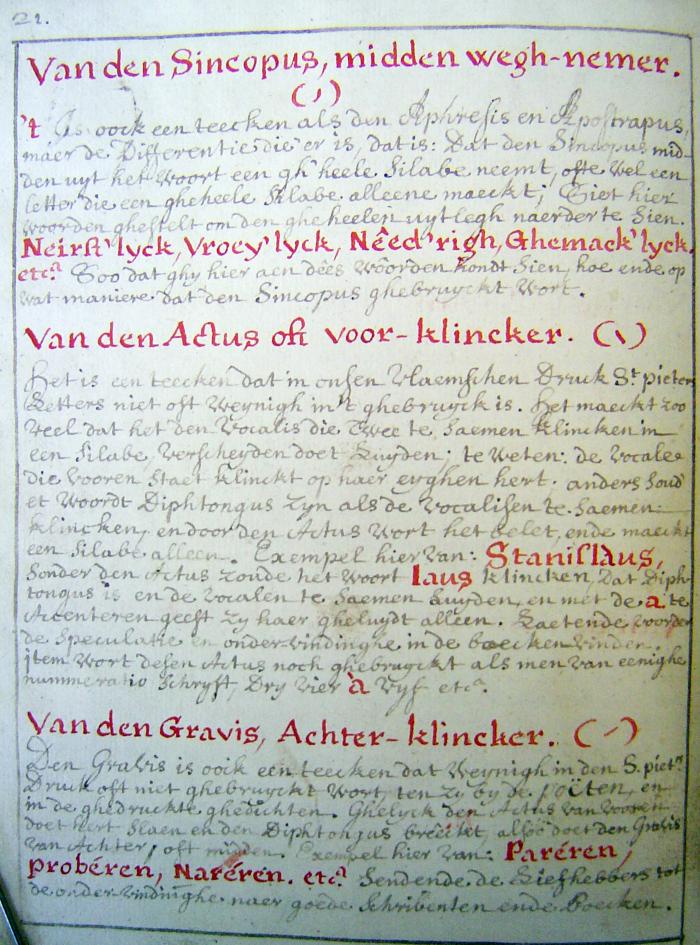 21.
Van den Sincopus, midden wegh-nemer.
(,)
't Is oock een teecken als den Aphresis en Apostrapus,
maer de Differentie die er is, dat is: Dat den Sincopus mid-
den uyt het Woort een gh'heele Silabe neemt, ofte wel een
letter die een gheheele Silabe alleene maeckt; Siet hier
woorden ghestelt om den gheheelen uytlegh naerder te Sien.
Neirst'lyck, Vroey'lyck, Nêed'righ, Ghemack'lyck.
etc.a Soo dat ghy hier aen dêes Wôorden kondt Sien, hoe ende op
wat maniere dat den Sincopus ghebruyckt Wort.
Van den Actus oft voor-klincker. (ˋ)
Het is een teecken dat in onsen Vlaemschen Druck St pieters
Letters niet oft Weynigh in't ghebruyck is. Het maeckt zoo
Veel dat het den Vocalis die Twee te Saemen klincken in
een Silabe, Verscheyden doet Luyden; te Weten: de Vocale
die Vooren Staet klinckt op haer eyghen hert. anders Soud'
et Woordt Diphtongus Zyn als de Vocalisen te Saemen
klincken, en door den Actus Wort het belet, ende maeckt
een Silabe alleen. Exempel hier Van: Stanislàus,
Sonder den Actus zoude het Woort laus klincken, Dat Diph-
tongus is en de Vocalen te Saemen Luyden, en met de a te
Accenteren geeft Zy haer gheluydt alleen. Laetende Voorder
de Speculatie en onder-Vindinghe in de boecken Vinden.
jtem Wort desen Actus noch ghebruyckt als men Van eenighe
nummeratio Schryft, Dry Vier à Vyf etc.a
Van den Gravis, Achter-klincker. (´)
Den Gravis is oock een teecken dat Weynigh in den S. pietrs
Druck oft niet ghebruyckt Wort, ten Zy by de Poiten, en
in de ghedruckte ghedichten. Ghelyck den Actus Van Vooren
doet hert Slaen en den Diphtongus breeckt, alsoo doet den Gravis
Van Achter, oft midden. Exempel hier Van: Paréren,
probéren, Naréren. etc.a Sendende de Liefhebbers tot
de onder-Vindinghe naer goede Schribenten ende Boecken.